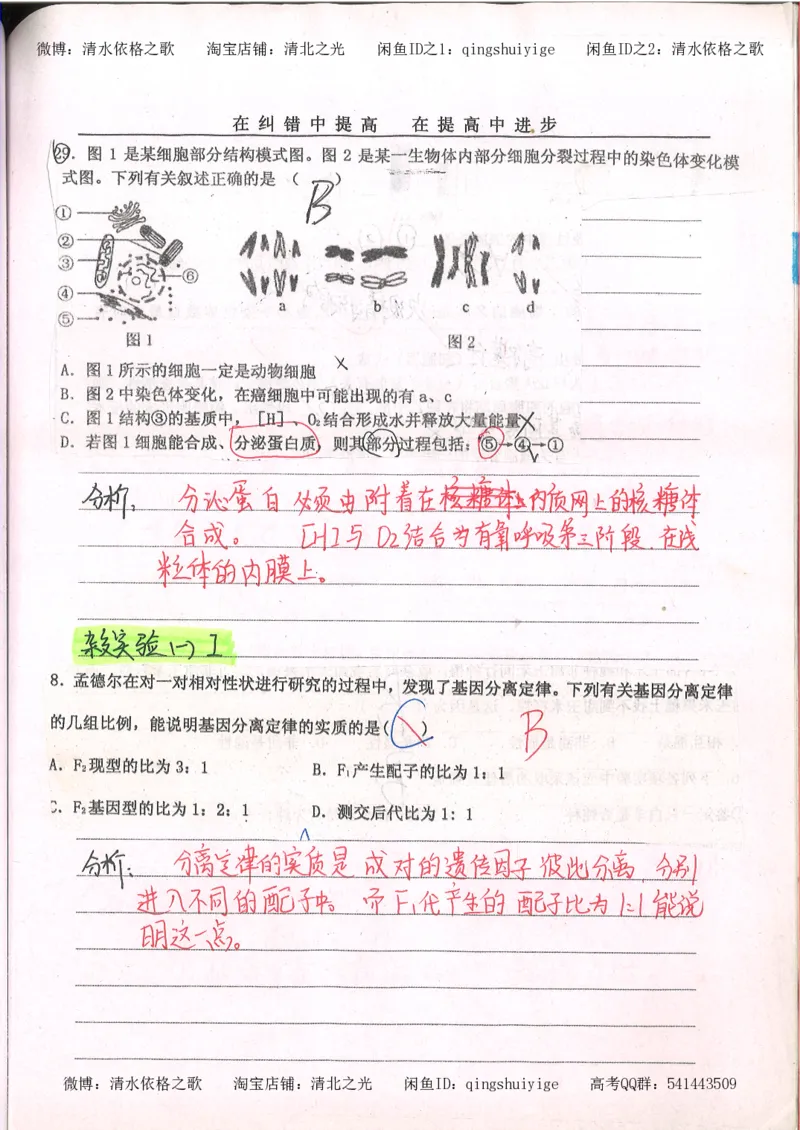 微博：清水依格之歌 淘宝店铺：清北之光 闲鱼ID之1：qingshuiyige 闲鱼ID之2：清水依格之歌
在纠错中提高 在提高中进步
29．图 1 是某细胞部分结构模式图。图 2 是某一生物体内部分细胞分裂过程中的染色体变化模
式图。下列有关叙述正确的是 （ B ）
①
②
③
④
⑤
⑥
a b c d
图 1 图 2
A．图 1 所示的细胞一定是动物细胞 ×
B．图 2 中染色体变化，在癌细胞中可能出现的有 a、c
C．图 1 结构③的基质中，［H］、O₂结合形成水并释放大量能量 ×
D．若图 1 细胞能合成、分泌蛋白质，则其部分过程包括：⑤→④→①
分析： 分泌蛋白必须由附着在核糖体上内质网上的核糖体
合成。 [H]与O2结合为有氧呼吸第三阶段.在线
粒体的内膜上。
杂交实验(一) I
8．孟德尔在对一对相对性状进行研究的过程中，发现了基因分离定律。下列有关基因分离定律
的几组比例，能说明基因分离定律的实质的是( ) B
A．F₂现型的比为 3：1 B．F₁产生配子的比为 1：1
C．F₂基因型的比为 1：2：1 D．测交后代比为 1：1
分析： 分离定律的实质是成对的遗传因子彼此分离，分别
进入不同的配子中。而F₁代产生的配子比为1:1能说
明这一点。
微博：清水依格之歌 淘宝店铺：清北之光 闲鱼ID：qingshuiyige 高考QQ群：541443509